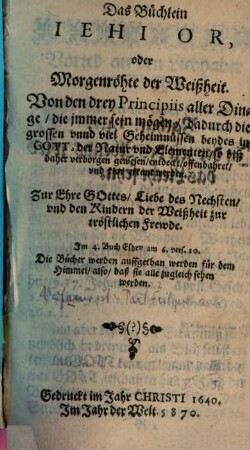 Das Büchlein
IEHI OR,
oder
Morgenröhte der Weißheit.
Von den drey Principiis aller Din-
ge / die immer sein mögen / Dadurch die
grossen vund viel Geheimnüssen beydes in
GOTT, der Natur vnd Elementen / so biß
daher verborgen gewesen / entdeckt / offenbahret /
vnd
Zur Ehre GOttes / Liebe des Nechsten /
vnd den Kindern der Weißheit zur
tröstlichen Frewde.
Im 4. Buch Esdræ am 6. vers. 20.
Die Bücher werden auffgethan werden für dem
Himmel / also / daß sie alle zugleich sehen
werden.
(?)
Gedruckt im Jahr CHRISTI 1640.
Im Jahr der Welt 5870.